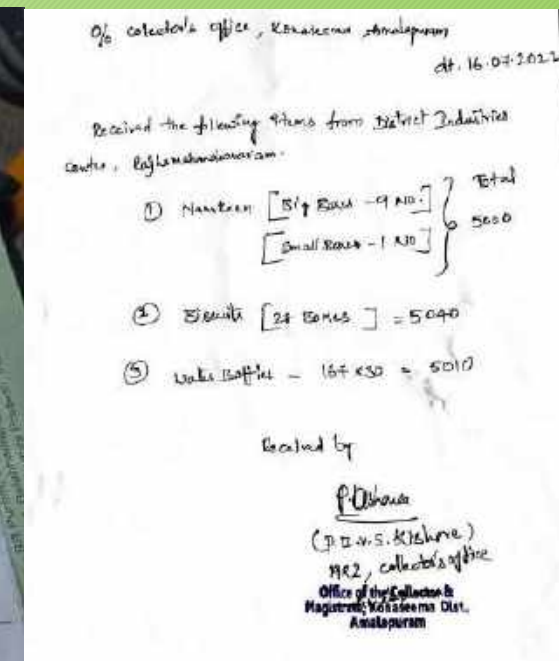 O/o collector's office, Konaseema Amalapuram
dt. 16.07.2022
Received the following items from District Industries
Centre, Rajhamahendravaram.
① Namkeen [Big Boxes - 9 NO.]
[Small Boxes - 1 NO]
Total
5000
② Biscuits [28 Boxes] = 5040
③ Water Bottles - 167 x30 = 5010
Received by
(P.D.V.S. Kishore)
collector's office
Office of the Collector &
Magistrate, Konaseema Dist.,
Amalapuram